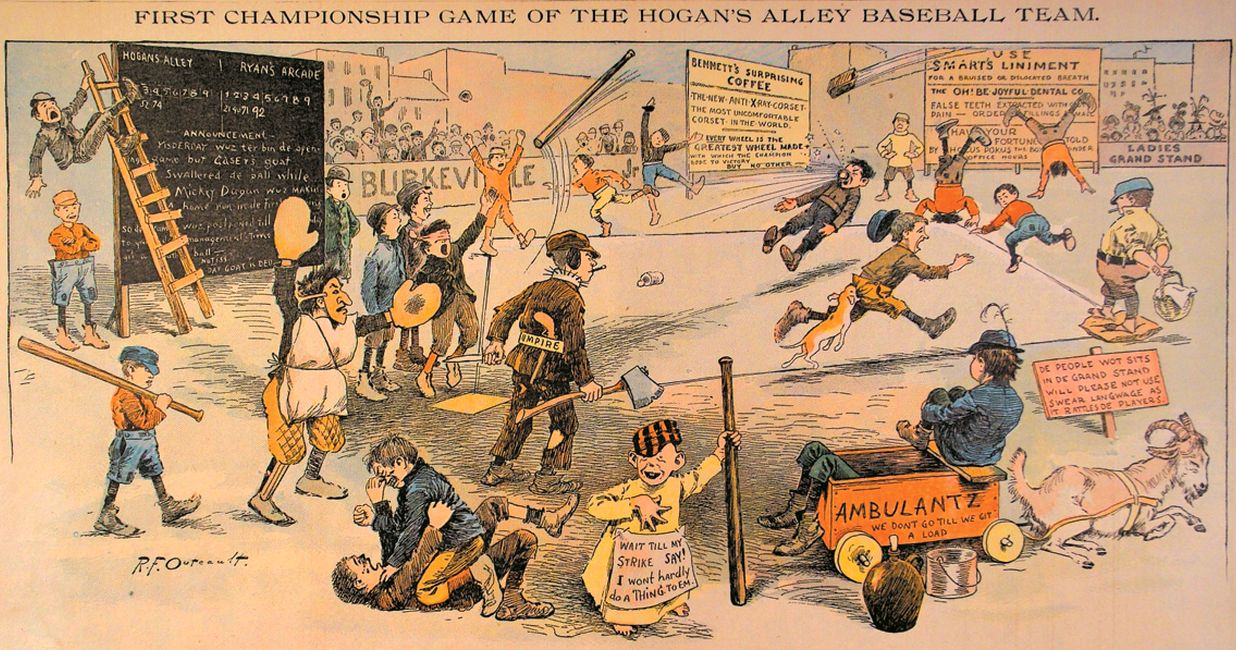 FIRST CHAMPIONSHIP GAME OF THE HOGAN'S ALLEY BASEBALL TEAM.
HOGANS ALLEY
RYAN'S ARCADE
3 4 5 6 7 8 9
1 2 3 4 5 6 7 8 9
92
ANNOUNCEMENT
YISDERDAY WUZ TER BIN DE OPEN-
GAME BUT CASEY'S GOAT
SWALLERED DE BALL WHILE
MICKEY DUGAN WUZ MAKIN
A HOME RUN
WUZ POSTPONED TILL
MANAGEMENT
BALL
NOTISS
DAT GOAT IS DED
BURKEVILLE
Jr
BENNETT'S SURPRISING
COFFEE
THE-NEW-ANTI-XRAY-CORSET-
THE MOST UNCOMFORTABLE
CORSET-IN-THE-WORLD.
EVERY WHEEL IS THE
GREATEST WHEEL MADE-
WITH WHICH THE CHAMPION
RODE TO VICTORY
BUT NO OTHER
USE
SMART'S LINIMENT
FOR A BRUISED OR DISLOCATED BREATH
THE OH! BE JOYFUL DENTAL CO.
FALSE TEETH EXTRACTED WITH
PAIN — ORDER FILLINGS
HAVE YOUR
FORTUNE TOLD
BY HOCUS POKUS THE
OFFICE HOURS
LADIES
GRAND STAND
UMPIRE
DE PEOPLE WOT SITS
IN DE GRAND STAND
WILL PLEASE NOT USE
SWEAR LANGWAGE AS
IT RATTLES DE PLAYERS.
AMBULANTZ
WE DONT GO TILL WE GIT
A LOAD
WAIT TILL MY
STRIKE SAY!
I WONT HARDLY
DO A THING TO EM.
R.F. Outcault.